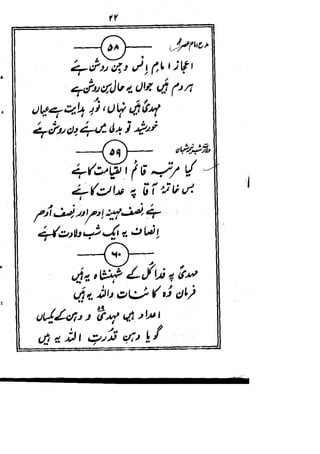 ۲۲
مدح امام عصرؑ
۵۸
اعجازِ امامِ انس و جن روشن ہے
ہر دم ہیں جواں یہ حال سن روشن ہے
مہدیؑ ہیں نہاں، نورِ ہدایت ہے عیاں
خورشید تو بدلی میں ہے دن روشن ہے
ولادت شب نیمہ شعبان
۵۹
کیا مرتبہ قائم القیامت کا ہے
بس خاتمہ آقا پہ عدالت کا ہے
ہے نصف مہینہ ادھر اور نصف اُدھر
انصاف یہ ایک شب ولادت کا ہے
۶۰
مہدیؑ پہ فدا کل کے شہنشاہ یہ ہیں
فرمان دہ کائنات واللہ یہ ہیں
اعداد ہیں مہدیؑ و دہن کے یکساں
گویا دہنِ قدرتِ اللہ یہ ہیں